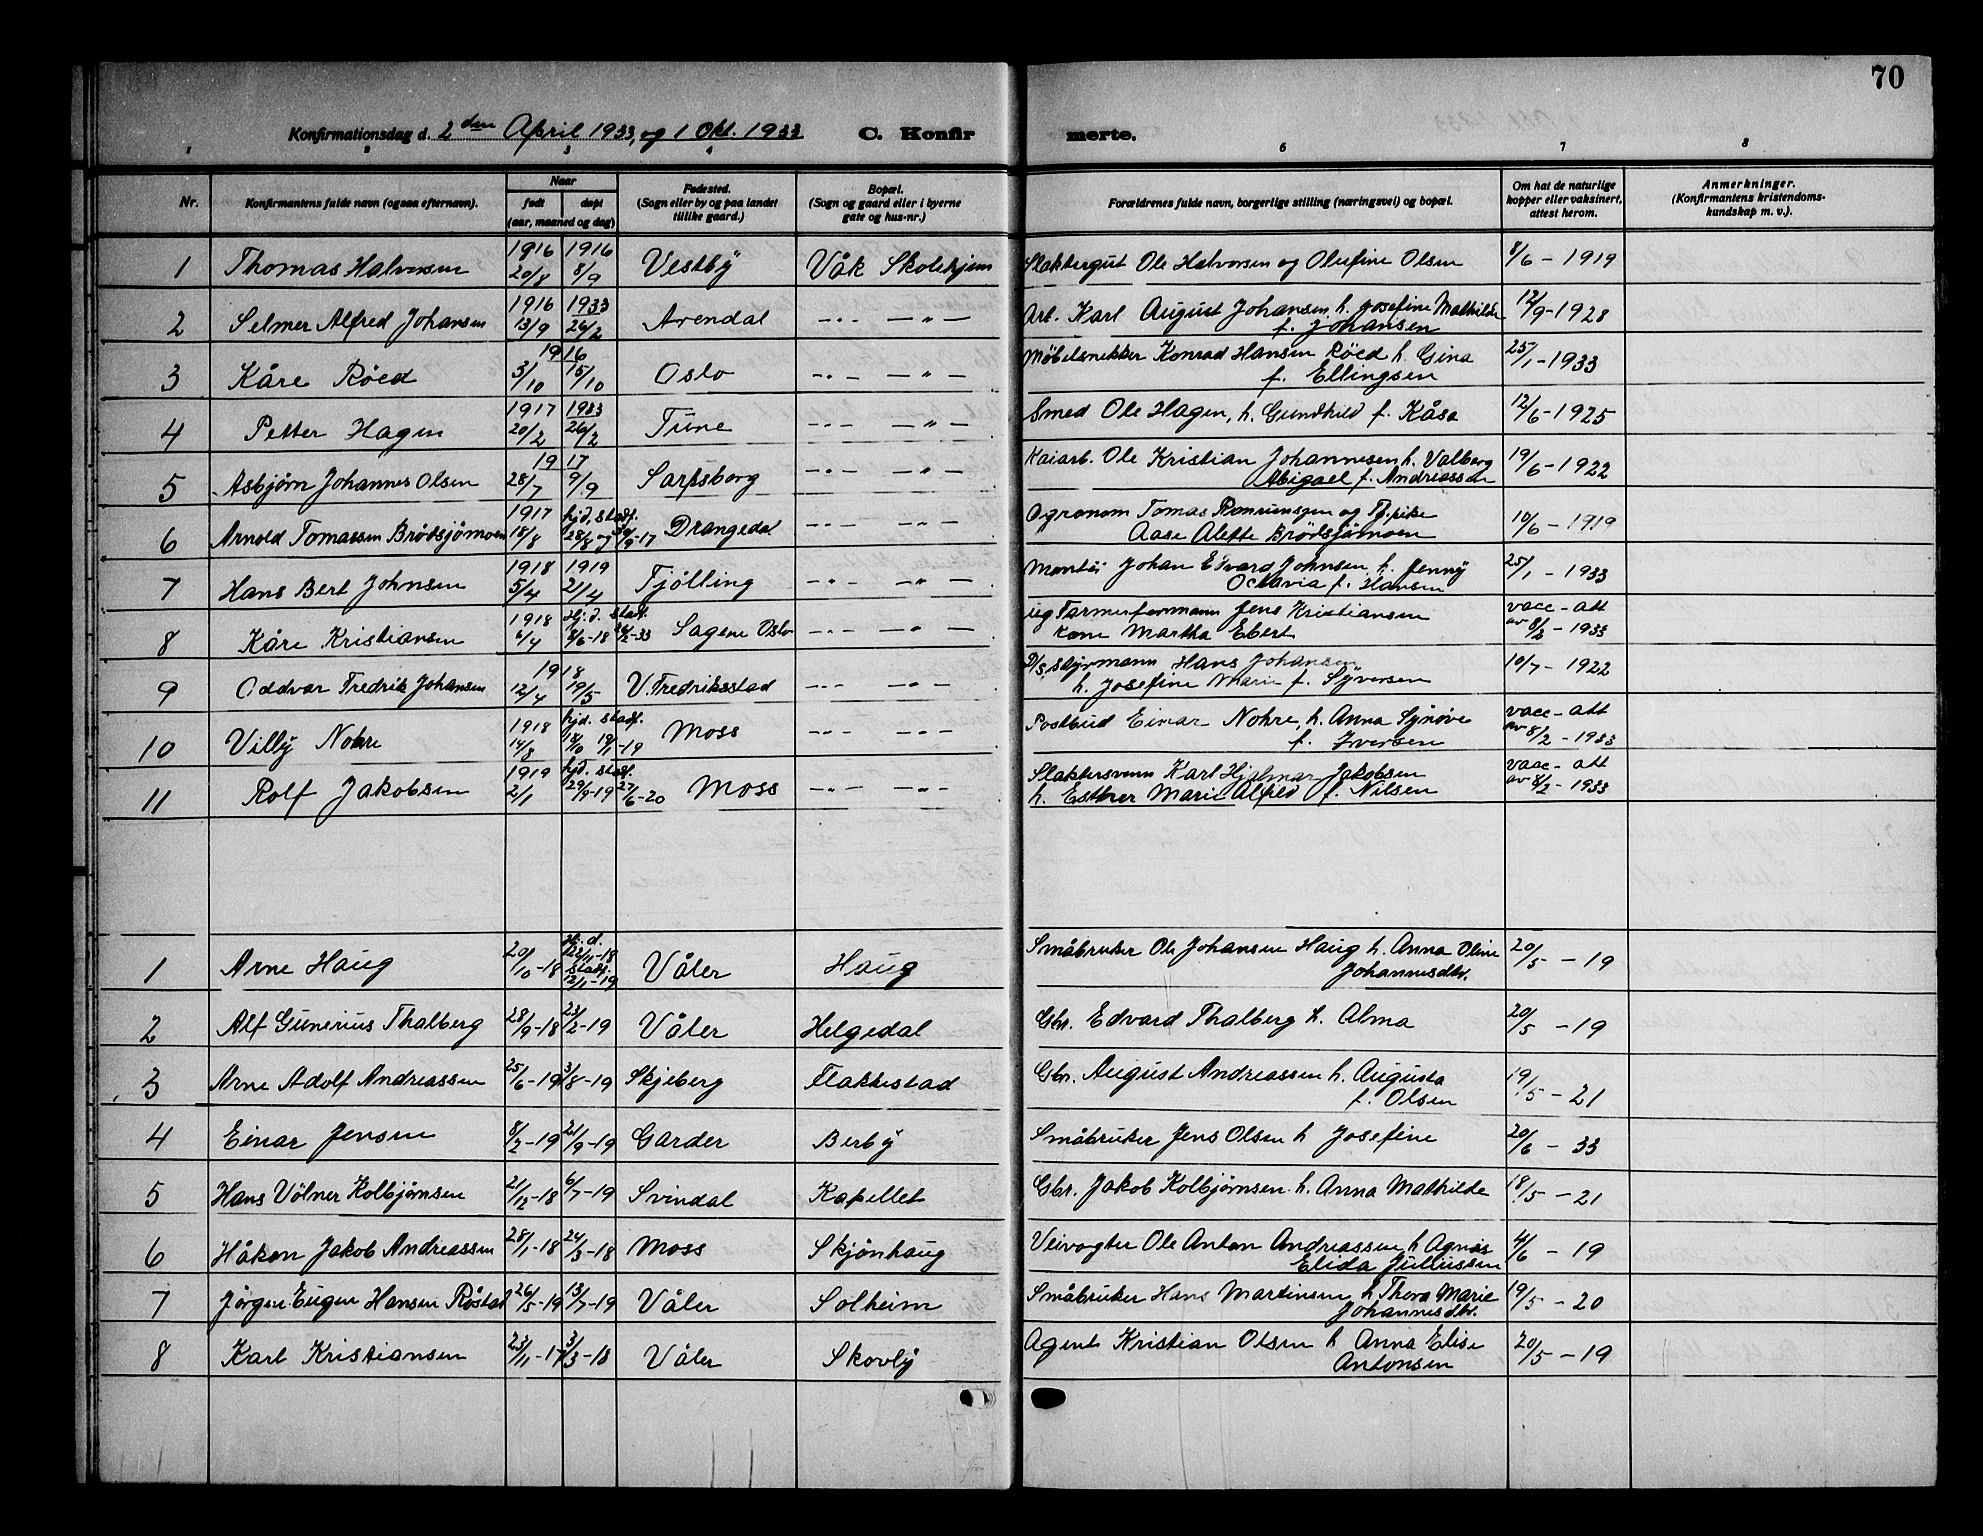 70
Konfirmationsdag d. 2den April 1933, og 1 Okt. 1933 C. Konfir merte.
1 2 3 4 6 7 8
Nr. Konfirmantens fulde navn (ogsaa efternavn). Naar født døpt (aar, maaned og dag) Fødested. (Sogn eller by og paa landet tillike gaard.) Bopæl. (Sogn og gaard eller i byerne gate og hus-nr.) Forældrenes fulde navn, borgerlige stilling (næringsvei) og bopæl. Om hat de naturlige kopper eller vaksinert, attest herom. Anmerkninger. (Konfirmantens kristendoms-kundskap m. v.).
1 Thomas Halvorsen 1916 20/8 1916 8/9 Vestby Våk Skolehjem Slaktergut Ole Halvorsen og Olufine Olsen 8/6 - 1919
2 Selmer Alfred Johansen 1916 13/9 1933 26/2 Arendal -"- -"- Arb. Karl August Johansen, h. Josefine Mathilde 12/9-1928
f. Johansen
3 Kåre Röed 1916 3/10 15/10 Oslo -"- -"- Möbelsnekker Konrad Hansen Röed h. Gina 25/1-1933
f. Ellingsen
4 Petter Hagen 1917 20/2 1933 26/2 Tune -"- -"- Smed Ole Hagen, h. Gunhild f. Kåsa 12/6-1925
5 Asbjørn Johannes Olsen 1917 28/7 9/9 Sarpsborg -"- -"- Kaiarb. Ole Kristian Johannesen h. Valberg 19/6-1922
Abigael f. Andreassen
6 Arnold Tomassen Brödsjömoen 1917 18/8 hjd. stadf. 28/8 og 30/9-17 Drangedal -"- -"- Agronom Tomas og Tj.pike 10/6 - 1919
Aase Alette Brödsjömoen
7 Hans Bert Johnsen 1918 5/4 1919 21/4 Tjölling -"- -"- Montör Johan Edvard Johnsen h. Jenny 25/1 - 1933
Octavia f. Hansen
8 Kåre Kristiansen 1918 6/4 Hj.d. stadf. 8/6-18 26/2-33 Sagene Oslo -"- -"- Jens Kristiansen vacc-att
kone Martha Ebert av 8/2 - 1933
9 Oddvar Fredrik Johansen 1918 12/4 19/5 V. Fredriksstad -"- -"- D/S. styrmann Hans Johansen 10/7 - 1922
h. Josefine Marie f. Syversen
10 Villy Nohre 1918 14/8 hjd. stadf. 18/10 19/1-19 Moss -"- -"- Postbud Einar Nohre, h. Anna Synöve vacc-att
f. Iversen av 8/2 - 1933
11 Rolf Jakobsen 1919 2/1 hjd. stadf. 29/9-19 27/6-20 Moss -"- -"- Slaktersvenn Karl Hjalmar Jakobsen vacc-att
h. Esther Marie Alfild f. Nilsen av 8/2 - 1933
1 Arne Haug 20/10-18 Hj.d. 22/11-18 stadf. 12/1-19 Våler Haug Småbruker Ole Johansen Haug h. Anna Oline 20/5 - 19
Johannesdtr.
2 Alf Gunerius Thalberg 28/9-18 23/2-19 Våler Helgedal Gbr. Edvard Thalberg h. Alma 20/5 - 19
3 Arne Adolf Andreassen 25/6-19 3/8-19 Skjeberg Flakkestad Gbr. August Andreassen h. Augusta 19/5 - 21
f. Olsen
4 Einar Jensen 8/2-19 21/9-19 Garder Berby Småbruker Jens Olsen h Josefine 20/6 - 33
5 Hans Völner Kolbjörnsen 21/12-18 6/7-19 Svindal Kapellet Gbr. Jakob Kolbjörnsen h. Anna Mathilde 18/5 - 21
6 Håkon Jakob Andreassen 28/1-18 24/3-18 Moss Skjönhaug Veivogter Ole Anton Andreassen h Agnes 4/6 - 19
Elida Juliussen
7 Jörgen Eugen Hansen Röstad 26/5-19 13/7-19 Våler Solheim Småbruker Hans Martinsen h Thora Marie 19/5 - 20
Johannesdtr.
8 Karl Kristiansen 23/11-17 3/3-18 Våler Skovly Agent Kristian Olsen h Anna Elise 20/5 - 19
Antonsen